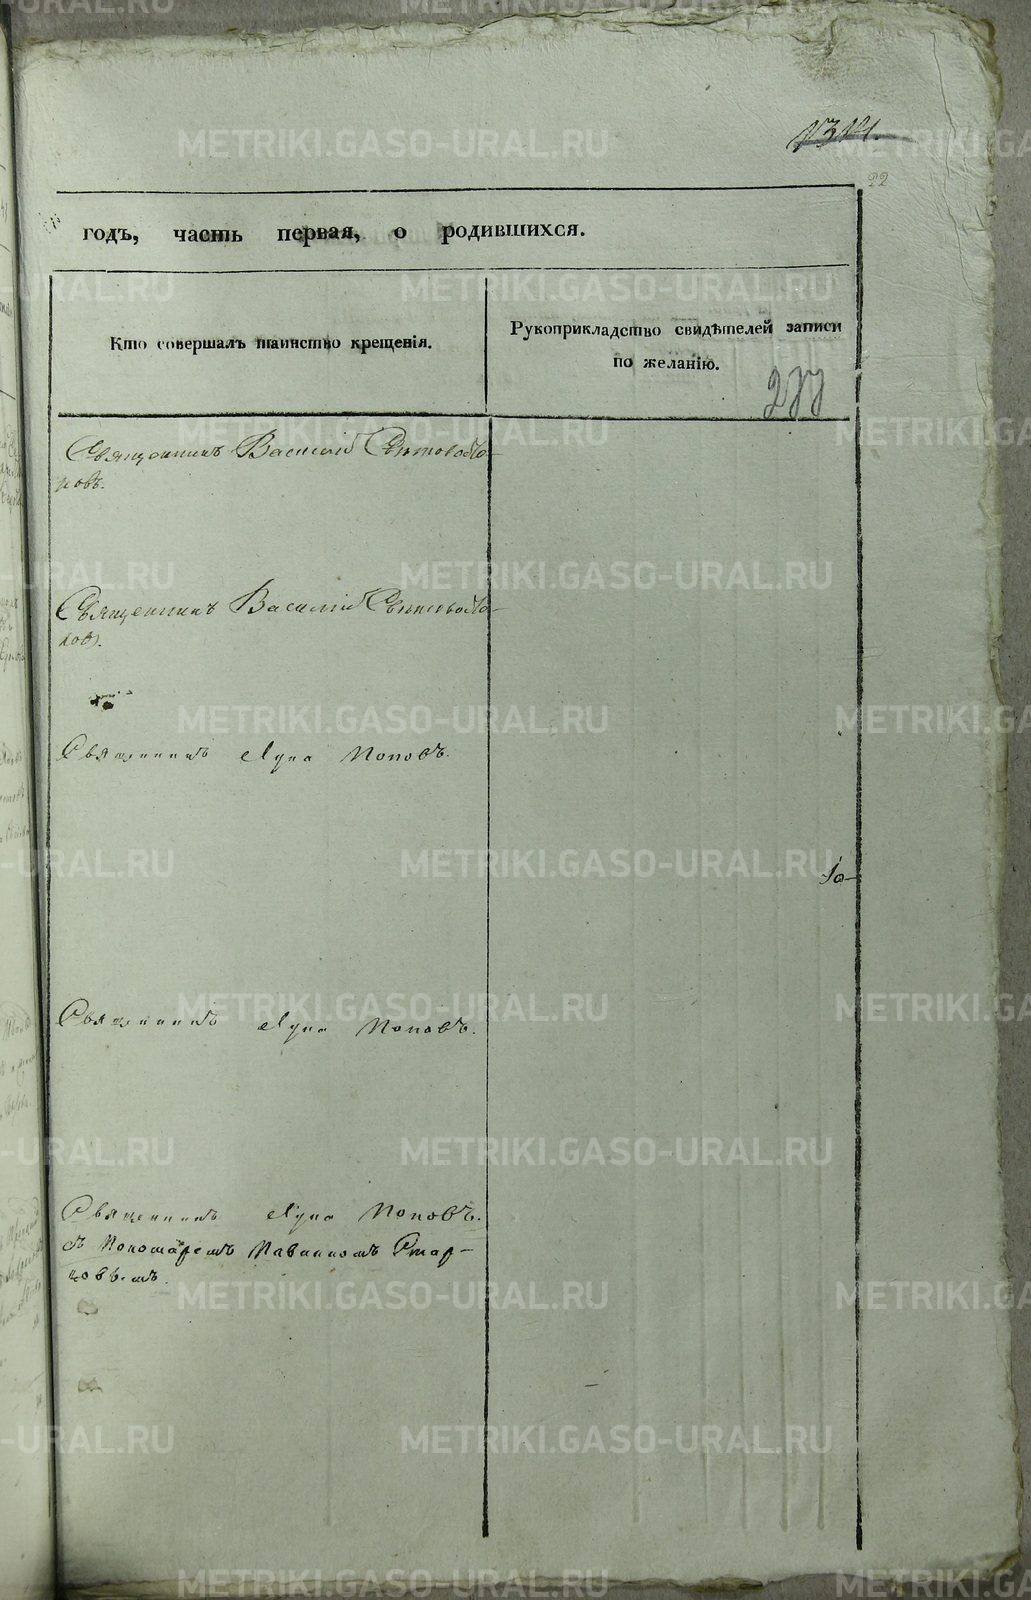 1314.
22
годъ, часть первая, о родившихся.
Кто совершалъ таинство крещенія.
Рукоприкладство свидѣтелей записи
по желанію.
277
Священникъ Василій Свѣтоводо-
ковъ.
Священникъ Василій Свѣтоводо-
ковъ.
Священникъ Лука Поповъ.
Священникъ Лука Поповъ.
Священникъ Лука Поповъ.
съ Пономаремъ Павлиномъ Стар-
цовымъ.
METRIKI.GASO-URAL.RU